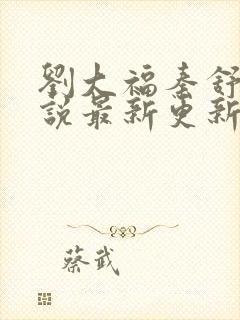 劉大福秦舒
說最新更新
蔡武